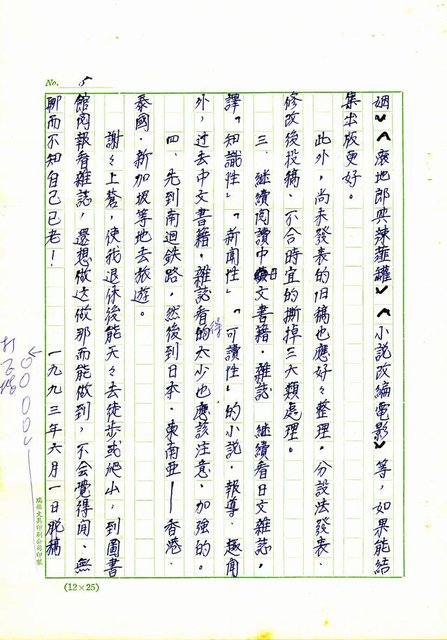 No. 5
姻〉〈廣地郎與辣韮罐〉〈小說改編電影〉等，如果能結
集出版更好。
此外，尚未發表的旧稿也應好々整理。分設法發表．
修改後投稿．不合時宜的撕掉三大類處理。
三．継續閱讀中日文書籍．雜誌．継續看日文雜誌。
譯「知識性」「新聞性」「可讀性」的小説．報導．趣聞
外，过去中文書籍．雜誌看得太少也應該注意．加強的。
四．先到南迴鉄路，然後到日本．東南亜——香港．
泰國．新加坡等地去旅遊。
謝々上蒼，使我退休後能天々去徒步或爬山，到圖書
館閱報看雜誌，還想做这做那而能做到，不会覺得閒．無
聊而不知自己已老！ 一九九三年六月一日脫稿
文具印刷公司印製
(12×25)